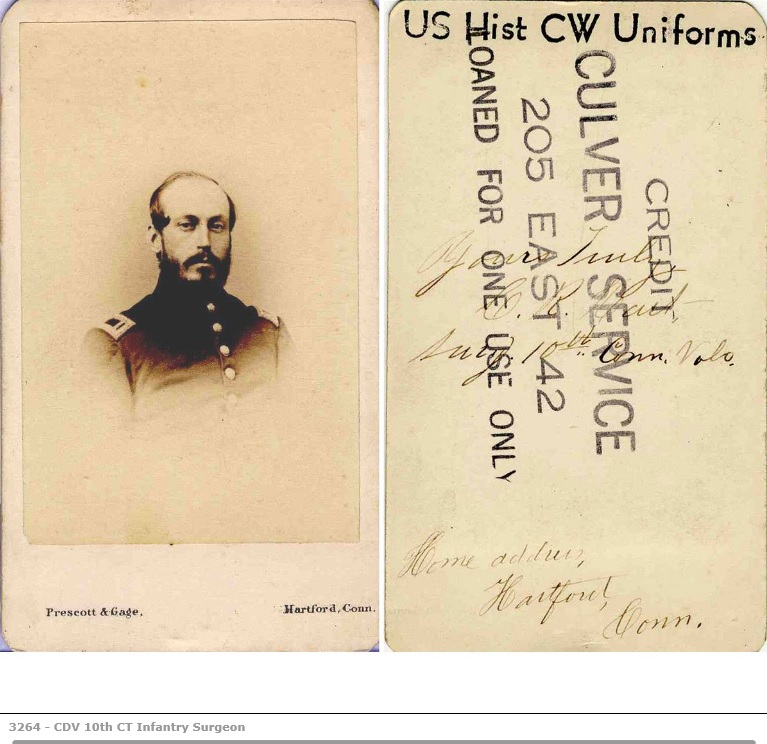 Prescott & Gage,
Hartford, Conn.
US Hist CW Uniforms
LOANED FOR ONE USE ONLY
205 EAST 42
CULVER SERVICE
CREDIT
Yours Truly,
C. R. Hart,
Surg. 10th Conn. Vols.
Home address,
Hartford,
Conn.
3264 - CDV 10th CT Infantry Surgeon